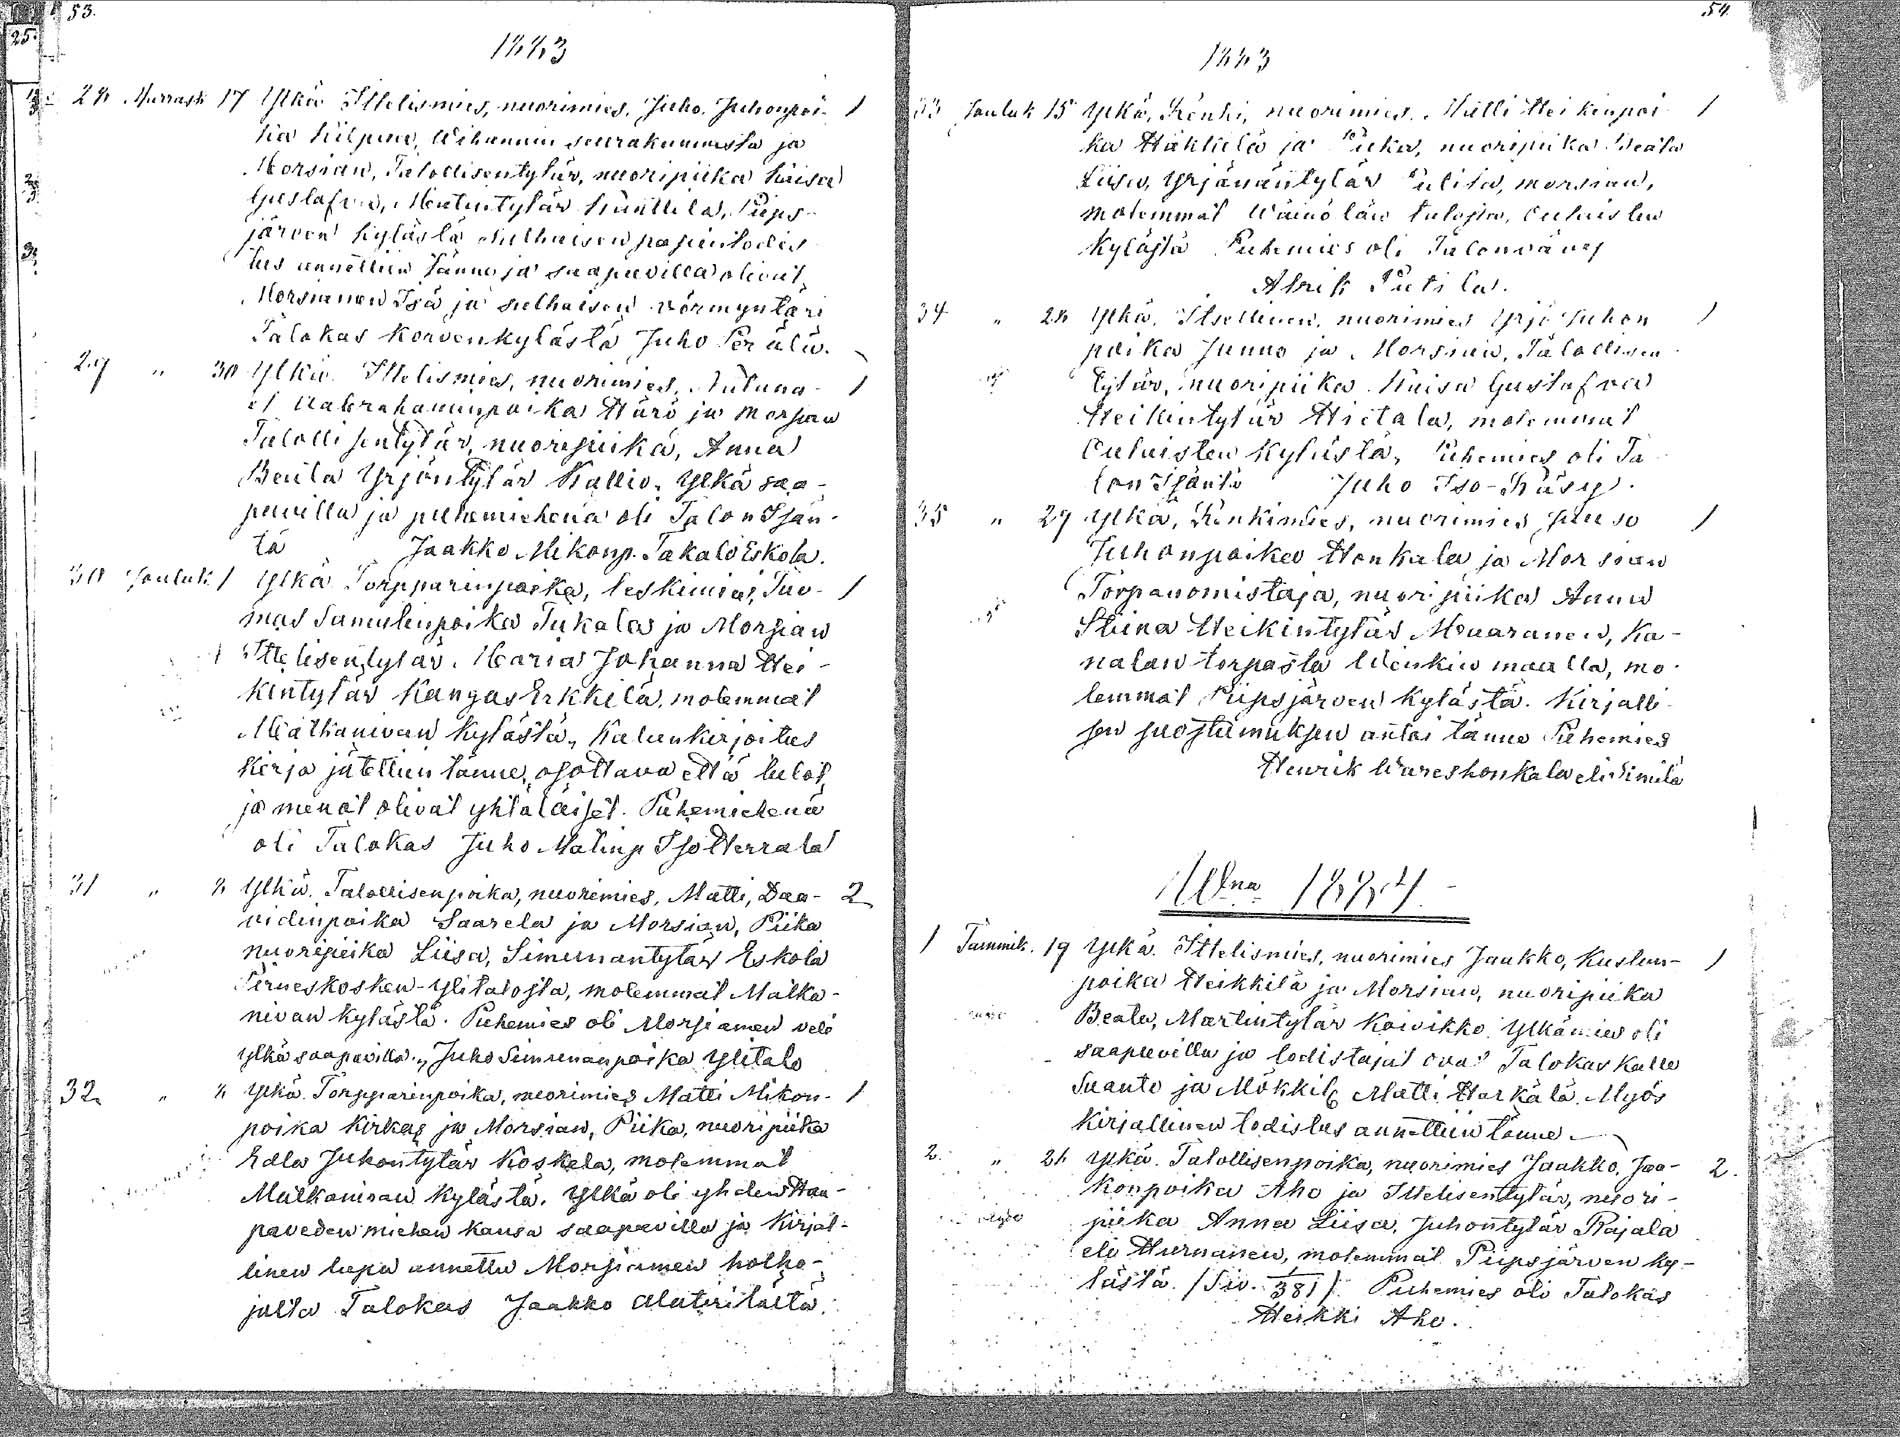 53.
25.
1883
28 Marrask 17 Ylkä Ittelismies, nuorimies, Juho Juhonpoi- 1
ka Kilpua, Wihannin seurakunnasta ja
Morsian, Talollisentytär, nuoripiika Kaisa
Gustafva, Matintytär Kunttila, Piips-
järven kylästä Sulhaisen papintodis
tus annettiin tänne ja saapuvilla olivat
Morsiamen Isä ja sulhaisen vörmyntäri
Talokas Korvenkylästä Juho Perälä.
29 " 30 Ylkä Ittelismies, nuorimies,
el Aabrahaminpoika Härö ja Morsian
Talollisentytär, nuoripiika, Anna
Beata Yrjöntytär Kallio, Ylkä saa-
puvilla ja puhemiehenä oli Talon Isän-
tä Jaakko Mikonp. Takalo Eskola.
30 Jouluk 1 Ylkä Torpparinpoika, leskimies, Tuo- 1
mas Samulinpoika Tukala ja Morsian
Ittelisentytär, Maria Johanna Hei-
kintytär KangasErkkilä, molemmat
Matkanivan kylästä, Kalunkirjoitus
kirja jätettiin tänne, osottava että tulot
ja menot olivat yhtäläiset. Puhemiehenä
oli Talokas Juho Matinp IsoHerrala
31 " 8 Ylkä. Talollisenpoika, nuorimies, Matti, Daa- 2
vidinpoika Saarela ja Morsian, Piika
nuoripiika Liisa, Simunantytär Eskola
Pirneskosken-Ylitalosta, molemmat Matka-
nivan kylästä. Puhemies oli Morsiamen veli
Ylkä saapuvilla „ Juho Simunanpoika Ylitalo
32 " 8 Ylkä. Torpparinpoika, nuorimies Matti Mikon- 1
poika Kirkas ja Morsian, Piika, nuoripiika
Edla Juhontytär Koskela, molemmat
Matkanivan kylästä. Ylkä oli yhden Haa-
paveden miehen kansa saapuvilla ja kirjal-
linen lupa annettu Morsiamen holho-
jalta Talokas Jaakko
54
1883
33 Jouluk 15 Ylkä, Renki, nuorimies, Matti Heikinpoi- 1
ka Häkkilä ja Piika, nuoripiika Beata
Liisa, Yrjänäntytär morsian,
molemmat Wäinölän talosta, Oulaisten
kylästä Puhemies oli Talonvävy
Abrik Pietilä.
34 " 28 Ylkä. Itsellinen, nuorimies Yrjö Juhon 1
poika Junno ja Morsian, Talollisen
tytär, nuoripiika Kaisa Gustafva
Heikintytär Hietala, molemmat
Oulaisten kylästä, Puhemies oli Ta
lon Isäntä Juho Iso-Räsy.
35 " 29 Ylkä, Renkimies, nuorimies Juuso 1
Juhonpoika Honkala ja Morsian
Torpanomistaja, nuoripiika Anna
Stiina Heikintytär Maaranen, Ka-
nalan torpasta maalla, mo-
lemmat Piipsjärven kylästä. Kirjalli
sen suostumuksen antoi tänne Puhemies
Henrik Wareshonkala eli Similä
Wna 1884
1 Tammik. 19 Ylkä. Ittelismies, nuorimies Jaakko, Kustun- 1
poika Heikkilä ja Morsian, nuoripiika
Beata, Martintytär Koivikko. Ylkämies oli
saapuvilla ja todistajat ovat Talokas Kalle
Suanto ja Mökkil. Matti Harkälä. Myös
kirjallinen todistus annettiin tänne
2. " 26 Ylkä. Talollisenpoika, nuorimies Jaakko, Jaa- 2.
konpoika Aho ja Ittelisentytär, nuori-
piika Anna Liisa, Juhontytär Rajala
eli Hurnanen, molemmat Piipsjärven ky-
lästä. /Siv. 381/. Puhemies oli Talokas
Heikki Aho.